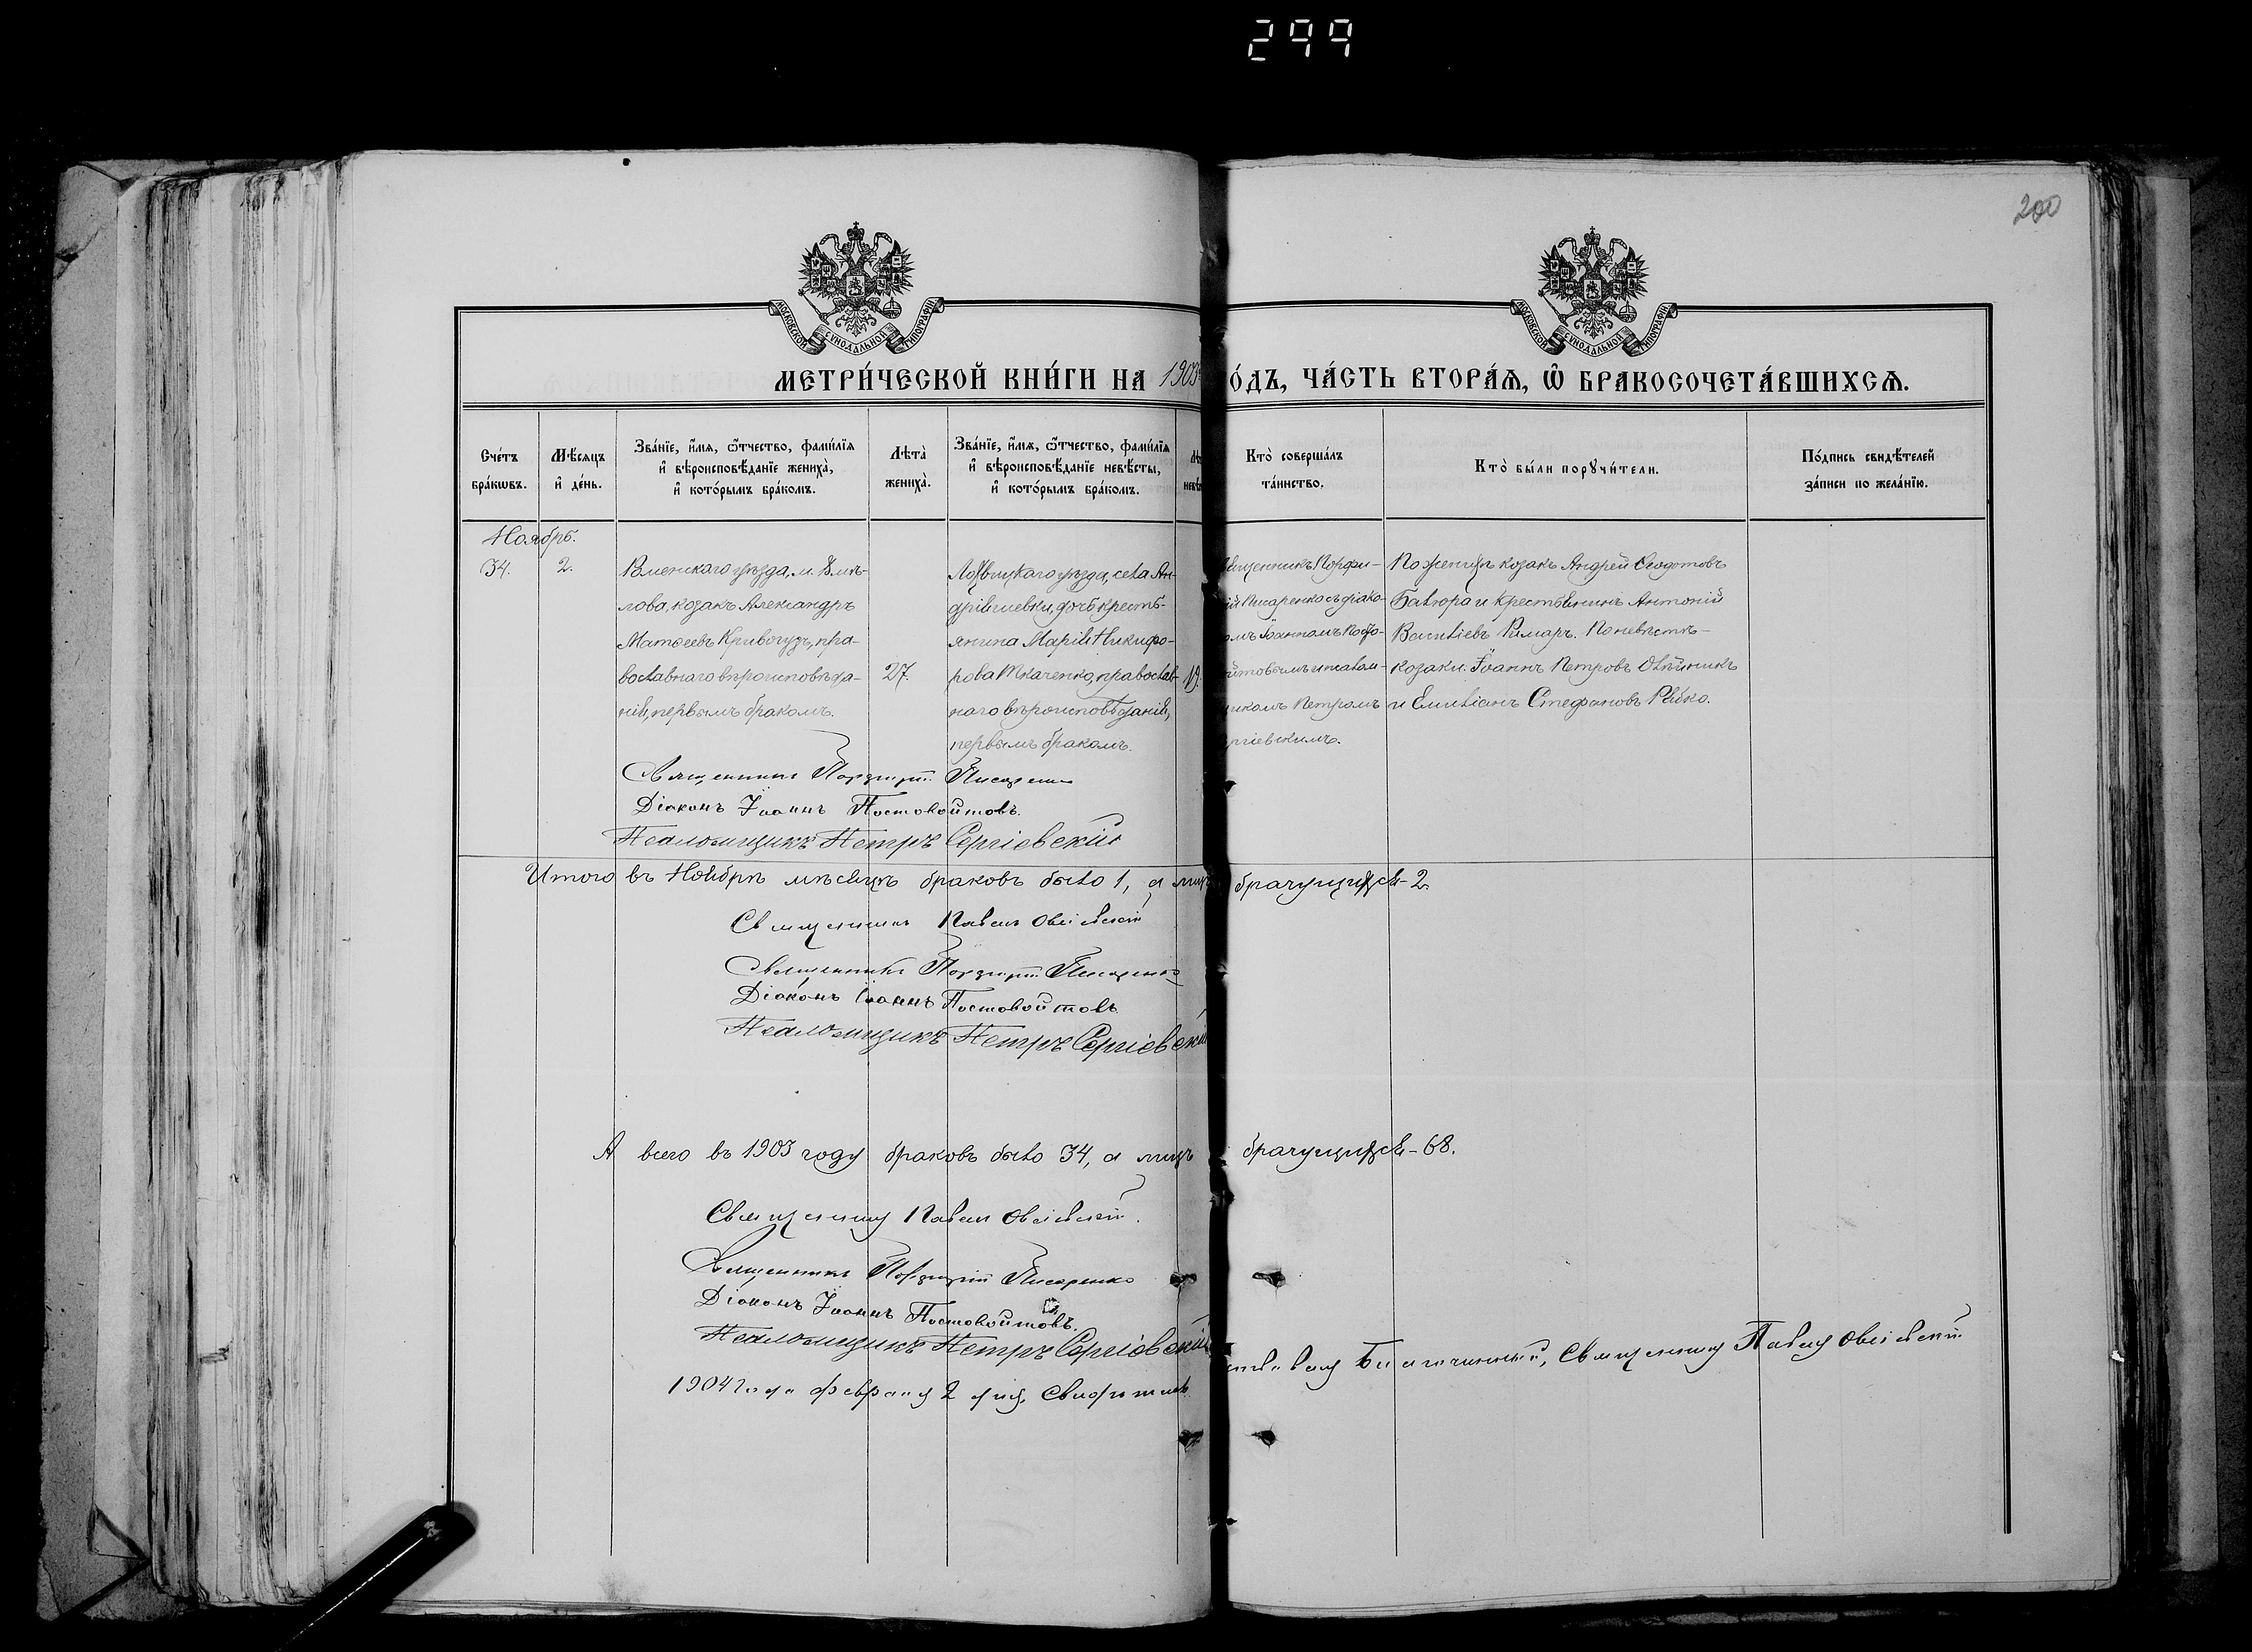 299
200
МОСКОВСКОЙ СѴНОДАЛЬНОЙ ТИПОГРАФІИ
МОСКОВСКОЙ СѴНОДАЛЬНОЙ ТИПОГРАФІИ
МЕТРИ́ЧЕСКОЙ КНИ́ГИ НА 1903 О́ДЪ, ЧА́СТЬ ВТОРА́Ѧ, Ѡ҆ БРАКОСОЧЕТА́ВШИХСѦ.
Сче́тъ бра́кѡвъ.
Мѣ́сяцъ и҆ де́нь.
Зва́нїе, и҆́мѧ, ѻ҆́тчество, фами́лїѧ и҆ вѣроисповѣ́данїе жениха̀, и҆ кото́рымъ бра́комъ.
Лѣта̀ жениха̀.
Зва́нїе, и҆́мѧ, ѻ҆́тчество, фами́лїѧ и҆ вѣроисповѣ́данїе невѣ́сты, и҆ кото́рымъ бра́комъ.
Кто̀ соверша́лъ та́инство.
Кто̀ бы́ли порꙋчи́тели.
По́дпись свидѣ́телей за́писи по жела́нїю.
Ноябрь.
34.
2.
Роменскаго уѣзда, м. Смѣ-
лова, козакъ Александръ
Матѳеевъ Кривогузъ, пра-
вославнаго вѣроисповѣда-
нія, первымъ бракомъ.
27.
Лохвицкаго уѣзда, села Ан-
дріяшевки, дочь кресть-
янина Марія Никифо-
рова Ткаченко, православ-
наго вѣроисповѣданія,
первымъ бракомъ.
19.
ященникъ Порфи-
ій Писаренко съ діако-
омъ Іоанномъ Посто-
ойтовымъ и псалом-
щикомъ Петромъ
ергіевскимъ.
По женихѣ козакъ Андрей Ѳеодотовъ
Бавюра и крестьянинъ Антоній
Василіевъ Римаръ. По невѣстѣ-
козаки: Іоаннъ Петровъ Олѣйникъ
и Емиліанъ Стефановъ Рябко.
Священникъ Порфирій Писаренко
Діаконъ Іоаннъ Постовойтовъ.
Псаломщикъ Петръ Сергіевскій
Итого въ Ноябрѣ мѣсяцѣ браковъ было 1, а лицъ брачущихся-2.
Священникъ Павелъ
Священникъ Порфирій Писаренко
Діаконъ Іоаннъ Постовойтовъ
Псаломщикъ Петръ Сергіевскій
А всего въ 1903 году браковъ было 34, а лицъ брачущихся-68.
Священникъ Павелъ
Священникъ Порфирій Писаренко
Діаконъ Іоаннъ Постовойтовъ.
Псаломщикъ Петръ Сергіевскій
1904 года февраля 2 дня, Свидѣтель
Благочинный, Священникъ Павелъ